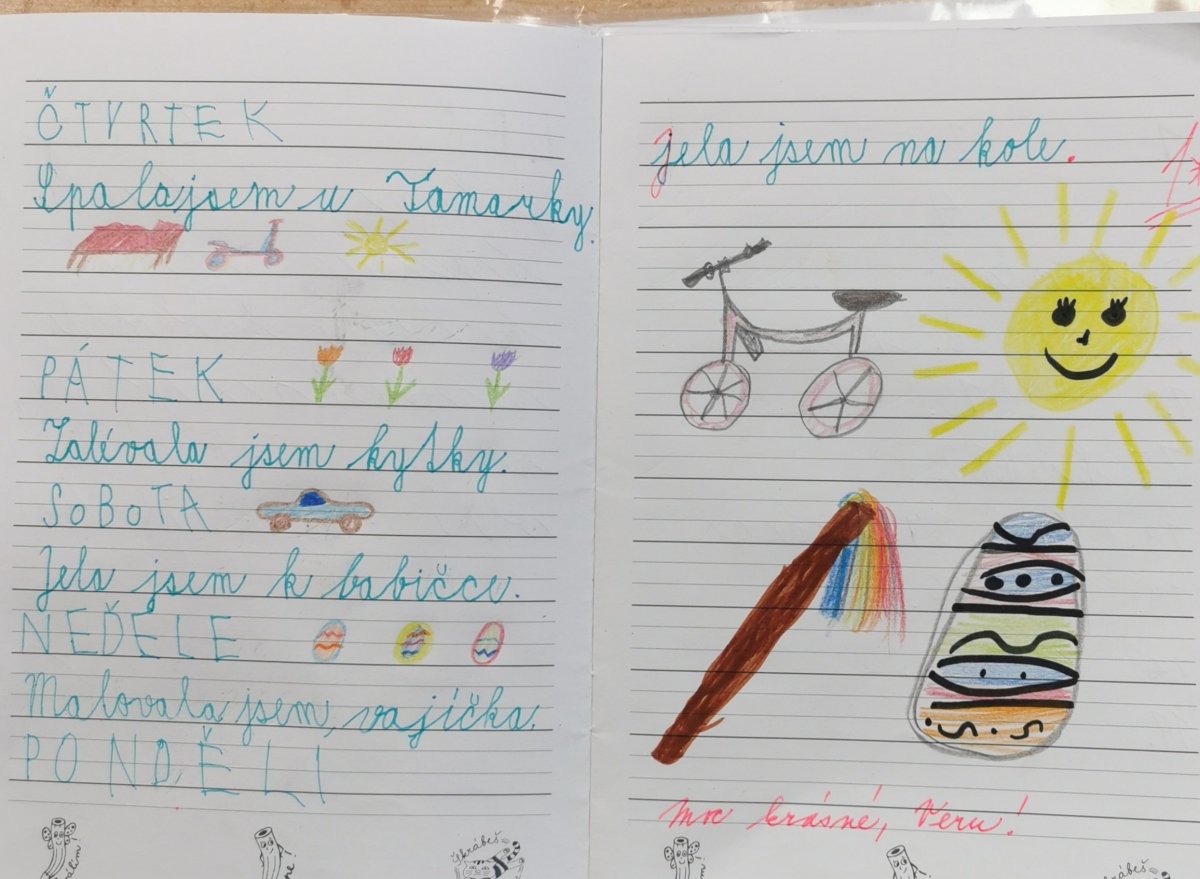 ČTVRTEK
Spala jsem u Tamarky.
PÁTEK
Zalévala jsem kytky.
SOBOTA
Jela jsem k babičce.
NEDĚLE
Malovala jsem vajíčka.
PONDĚLÍ
Jela jsem na kole.
1*
moc krásné, Veru!
Škrábeš